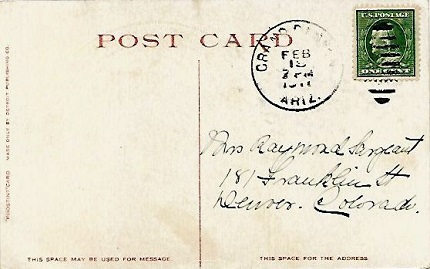 POST CARD
GRAND CANYON
FEB
1911
ARIZ.
U.S. POSTAGE
ONE CENT
"PHOSTINT" CARD MADE ONLY BY DETROIT PUBLISHING CO.
Mrs Raymond Sargeant
181 Franklin St
Denver. Colorado.
THIS SPACE MAY BE USED FOR MESSAGE
THIS SPACE IS FOR THE ADDRESS